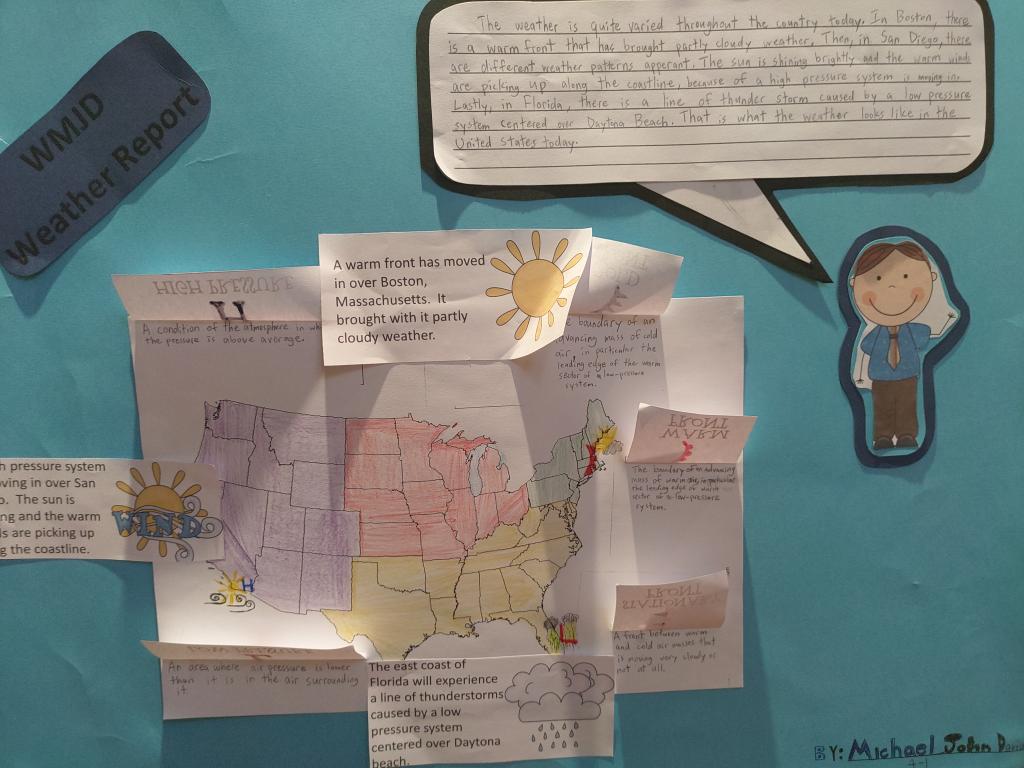 The weather is quite varied throughout the country today. In Boston, there
is a warm front that has brought partly cloudy weather. Then, in San Diego, there
are different weather patterns apperant. The sun is shining brightly and the warm winds
are picking up along the coastline, because of a high pressure system is moving in.
Lastly, in Florida, there is a line of thunder storm caused by a low pressure
system centered over Daytona Beach. That is what the weather looks like in the
United States today.
WMJD
Weather Report
A warm front has moved
in over Boston,
Massachusetts. It
brought with it partly
cloudy weather.
HIGH PRESSURE
H
A condition of the atmosphere in wh
the pressure is above average.
boundary of an
advancing mass of cold
air, in particular the
leading edge of the warm
sector of a low-pressure
system.
WARM
FRONT
The boundary of an advancing
mass of warm air, in particular
the leading edge of warm
sector of a low-pressure
system.
h pressure system
ving in over San
o. The sun is
ng and the warm
ds are picking up
g the coastline.
WIND
H
L
STATIONARY
FRONT
A front between warm
and cold air masses that
is moving very slowly or
not at all.
An area where air pressure is lower
than it is in the air surrounding
it.
The east coast of
Florida will experience
a line of thunderstorms
caused by a low
pressure system
centered over Daytona
beach.
BY: Michael John
4-1